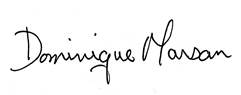 Dominique Marsan